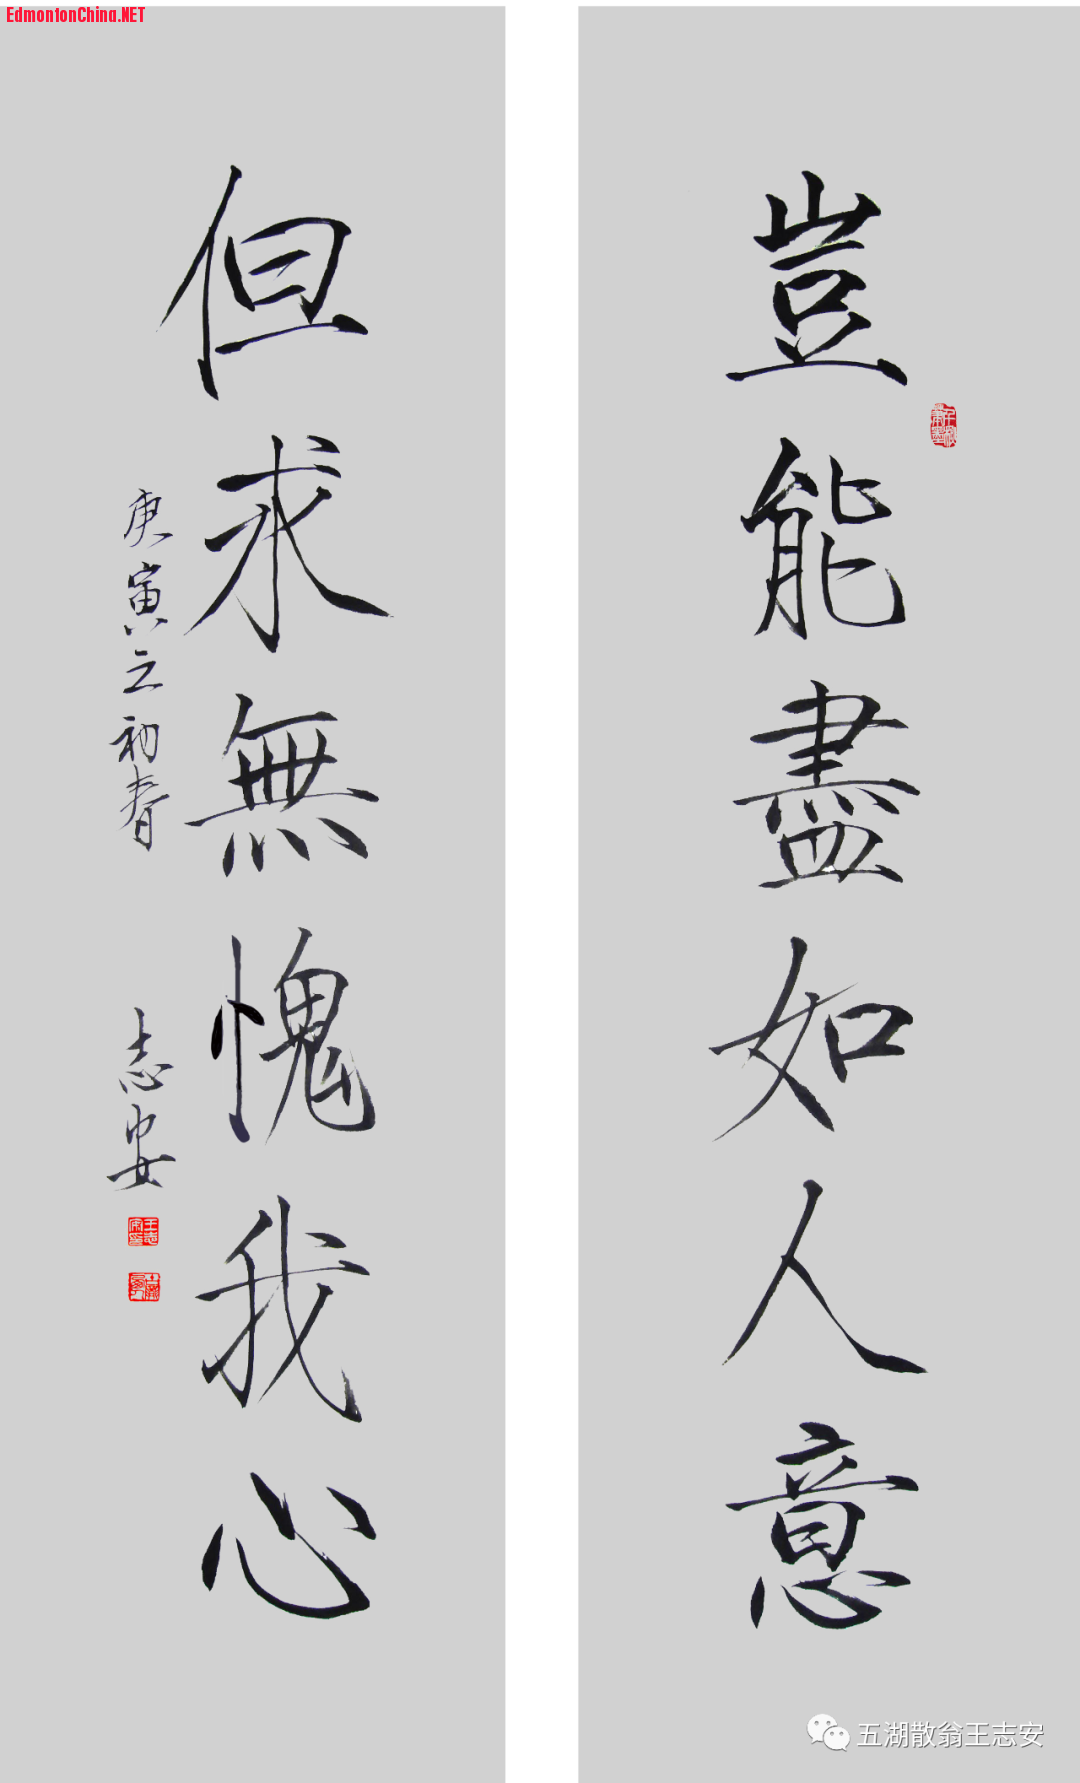 EdmontonChina.NET
豈能盡如人意
但求無愧我心
庚寅之初春
志安
王志安印
五湖散翁王志安